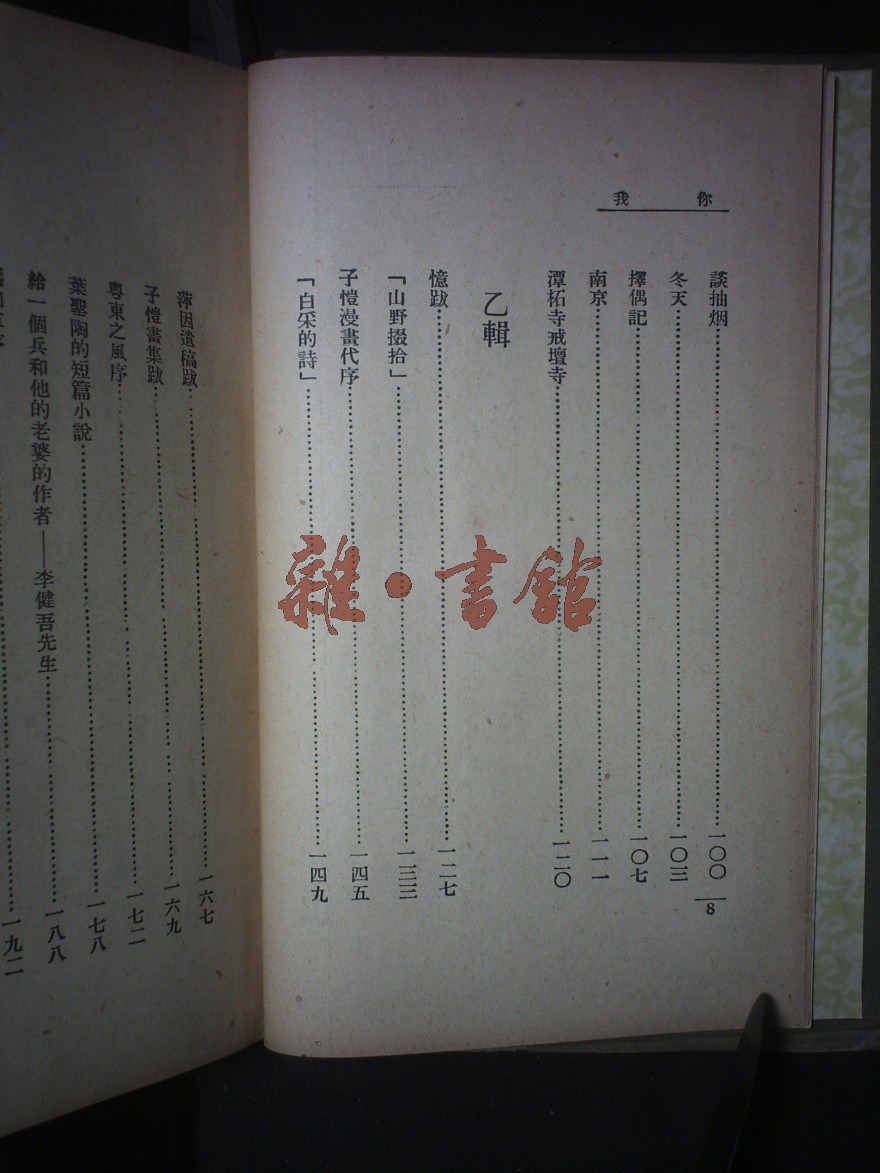 你我
談抽烟⋯⋯⋯⋯一〇〇
冬天⋯⋯⋯⋯一〇三
擇偶記⋯⋯⋯⋯一〇七
南京⋯⋯⋯⋯一一一
潭柘寺戒壇寺⋯⋯⋯⋯一二〇
乙輯
憶跋⋯⋯⋯⋯一二七
「山野掇拾」⋯⋯⋯⋯一三三
子愷漫畫代序⋯⋯⋯⋯一四五
「白采的詩」⋯⋯⋯⋯一四九
8
萍因遺稿跋⋯⋯⋯⋯一六七
子愷畫集跋⋯⋯⋯⋯一六九
粵東之風序⋯⋯⋯⋯一七二
葉聖陶的短篇小說⋯⋯⋯⋯一七八
給一個兵和他的老婆的作者——李健吾先生⋯⋯⋯⋯一八八
⋯⋯⋯⋯一九二
雜·書館